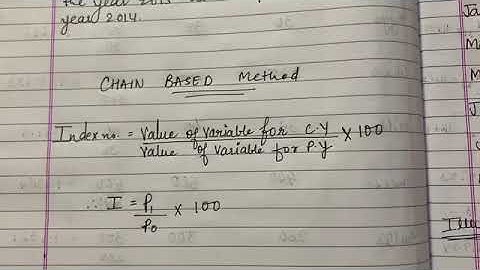 the year 2013
year 2014.
CHAIN BASED Method
Index no. = Value of Variable for C.Y / Value of Variable for P.Y × 100
∴ I = P1 / P0 × 100
Ja
Ma
M
J
A
Illu